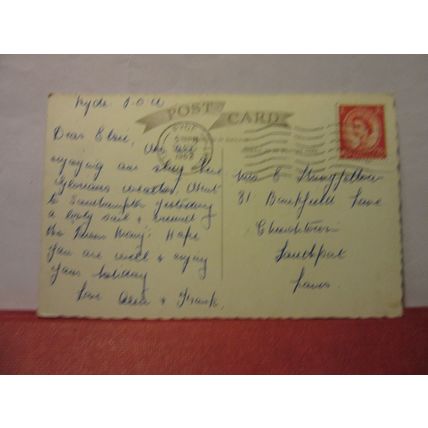 Ryde I.O.W
POST CARD
RYDE
1957
Dear Elsie, We are
enjoying our stay here
Glorious weather. Went
to Southampton yesterday
a lovely sail & round
the Queen Mary. Hope
you are well & enjoy
your holiday
Love & Frank.
Mrs E
81 Bankfield Lane
Churchtown
Southport
Lancs.